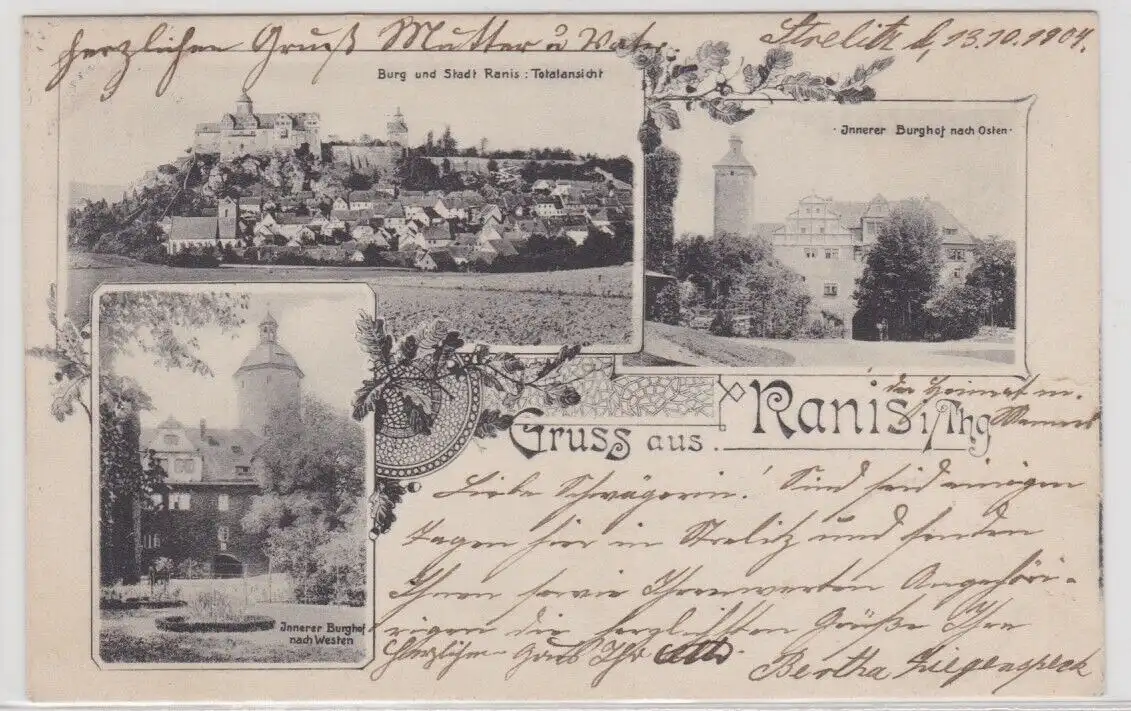 herzlichen Gruß Mutter u Vater
Strelitz d, 13.10.1904.
Burg und Stadt Ranis : Totalansicht
· Innerer Burghof nach Osten ·
Gruss aus Ranis i/Thg
der Heimat m.
Liebe Schwägerin! Sind seid einigen
Tagen hier in Strelitz und senden
Ihnen sowie Ihren werten Angehöri-
gen die herzlichsten Grüße Ihre
Herzlichen Gruß Ihr Otto.
Bertha Ziegenspeck
Innerer Burghof
nach Westen